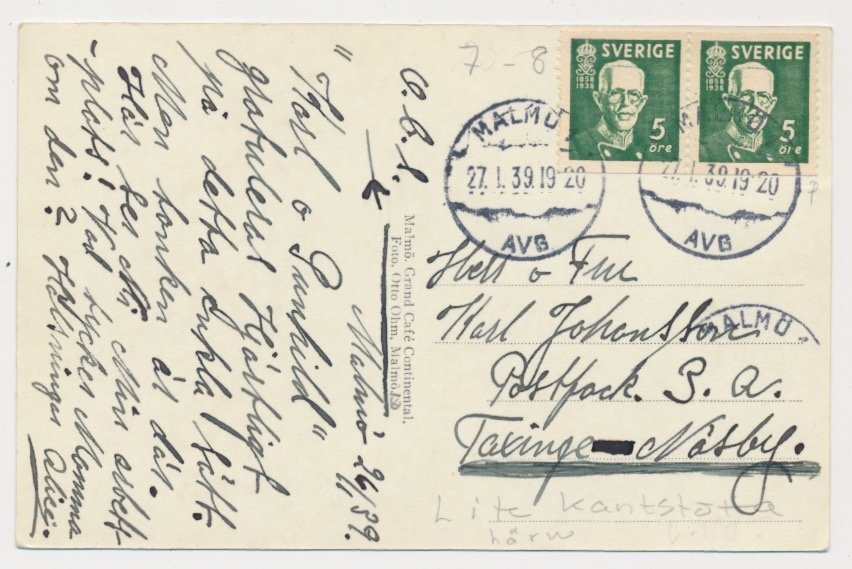 7-8
SVERIGE
1858
1938
5
öre
SVERIGE
1858
1938
5
öre
MALMÖ
27.1.39.19 20
AVG
MALMÖ
27.1.39.19 20
AVG
MALMÖ
O.B.S.
Malmö 26/1 39.
"Karl o Gunhild"
gratuleras Hjärtligt
på detta enkla sätt.
Men tanken är där.
Här ser Ni Min
-plats! Vad tycker Mamma
om den? Hälsningar
Malmö. Grand Café Continental.
Foto. Otto Ohm, Malmö.
Herr o Fru
Karl Johansson
Postfack. 3. A.
Taxinge-Näsby.
Lite kantstötta
hörn